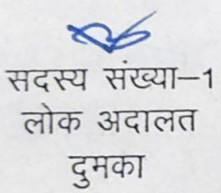 सदस्य संख्या–1
लोक अदालत
दुमका